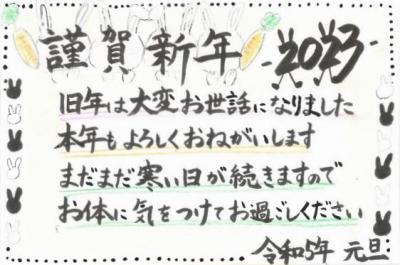 謹賀新年 2023
旧年は大変お世話になりました
本年もよろしくおねがいします
まだまだ寒い日が続きますので
お体に気をつけてお過ごしください
令和5年 元旦